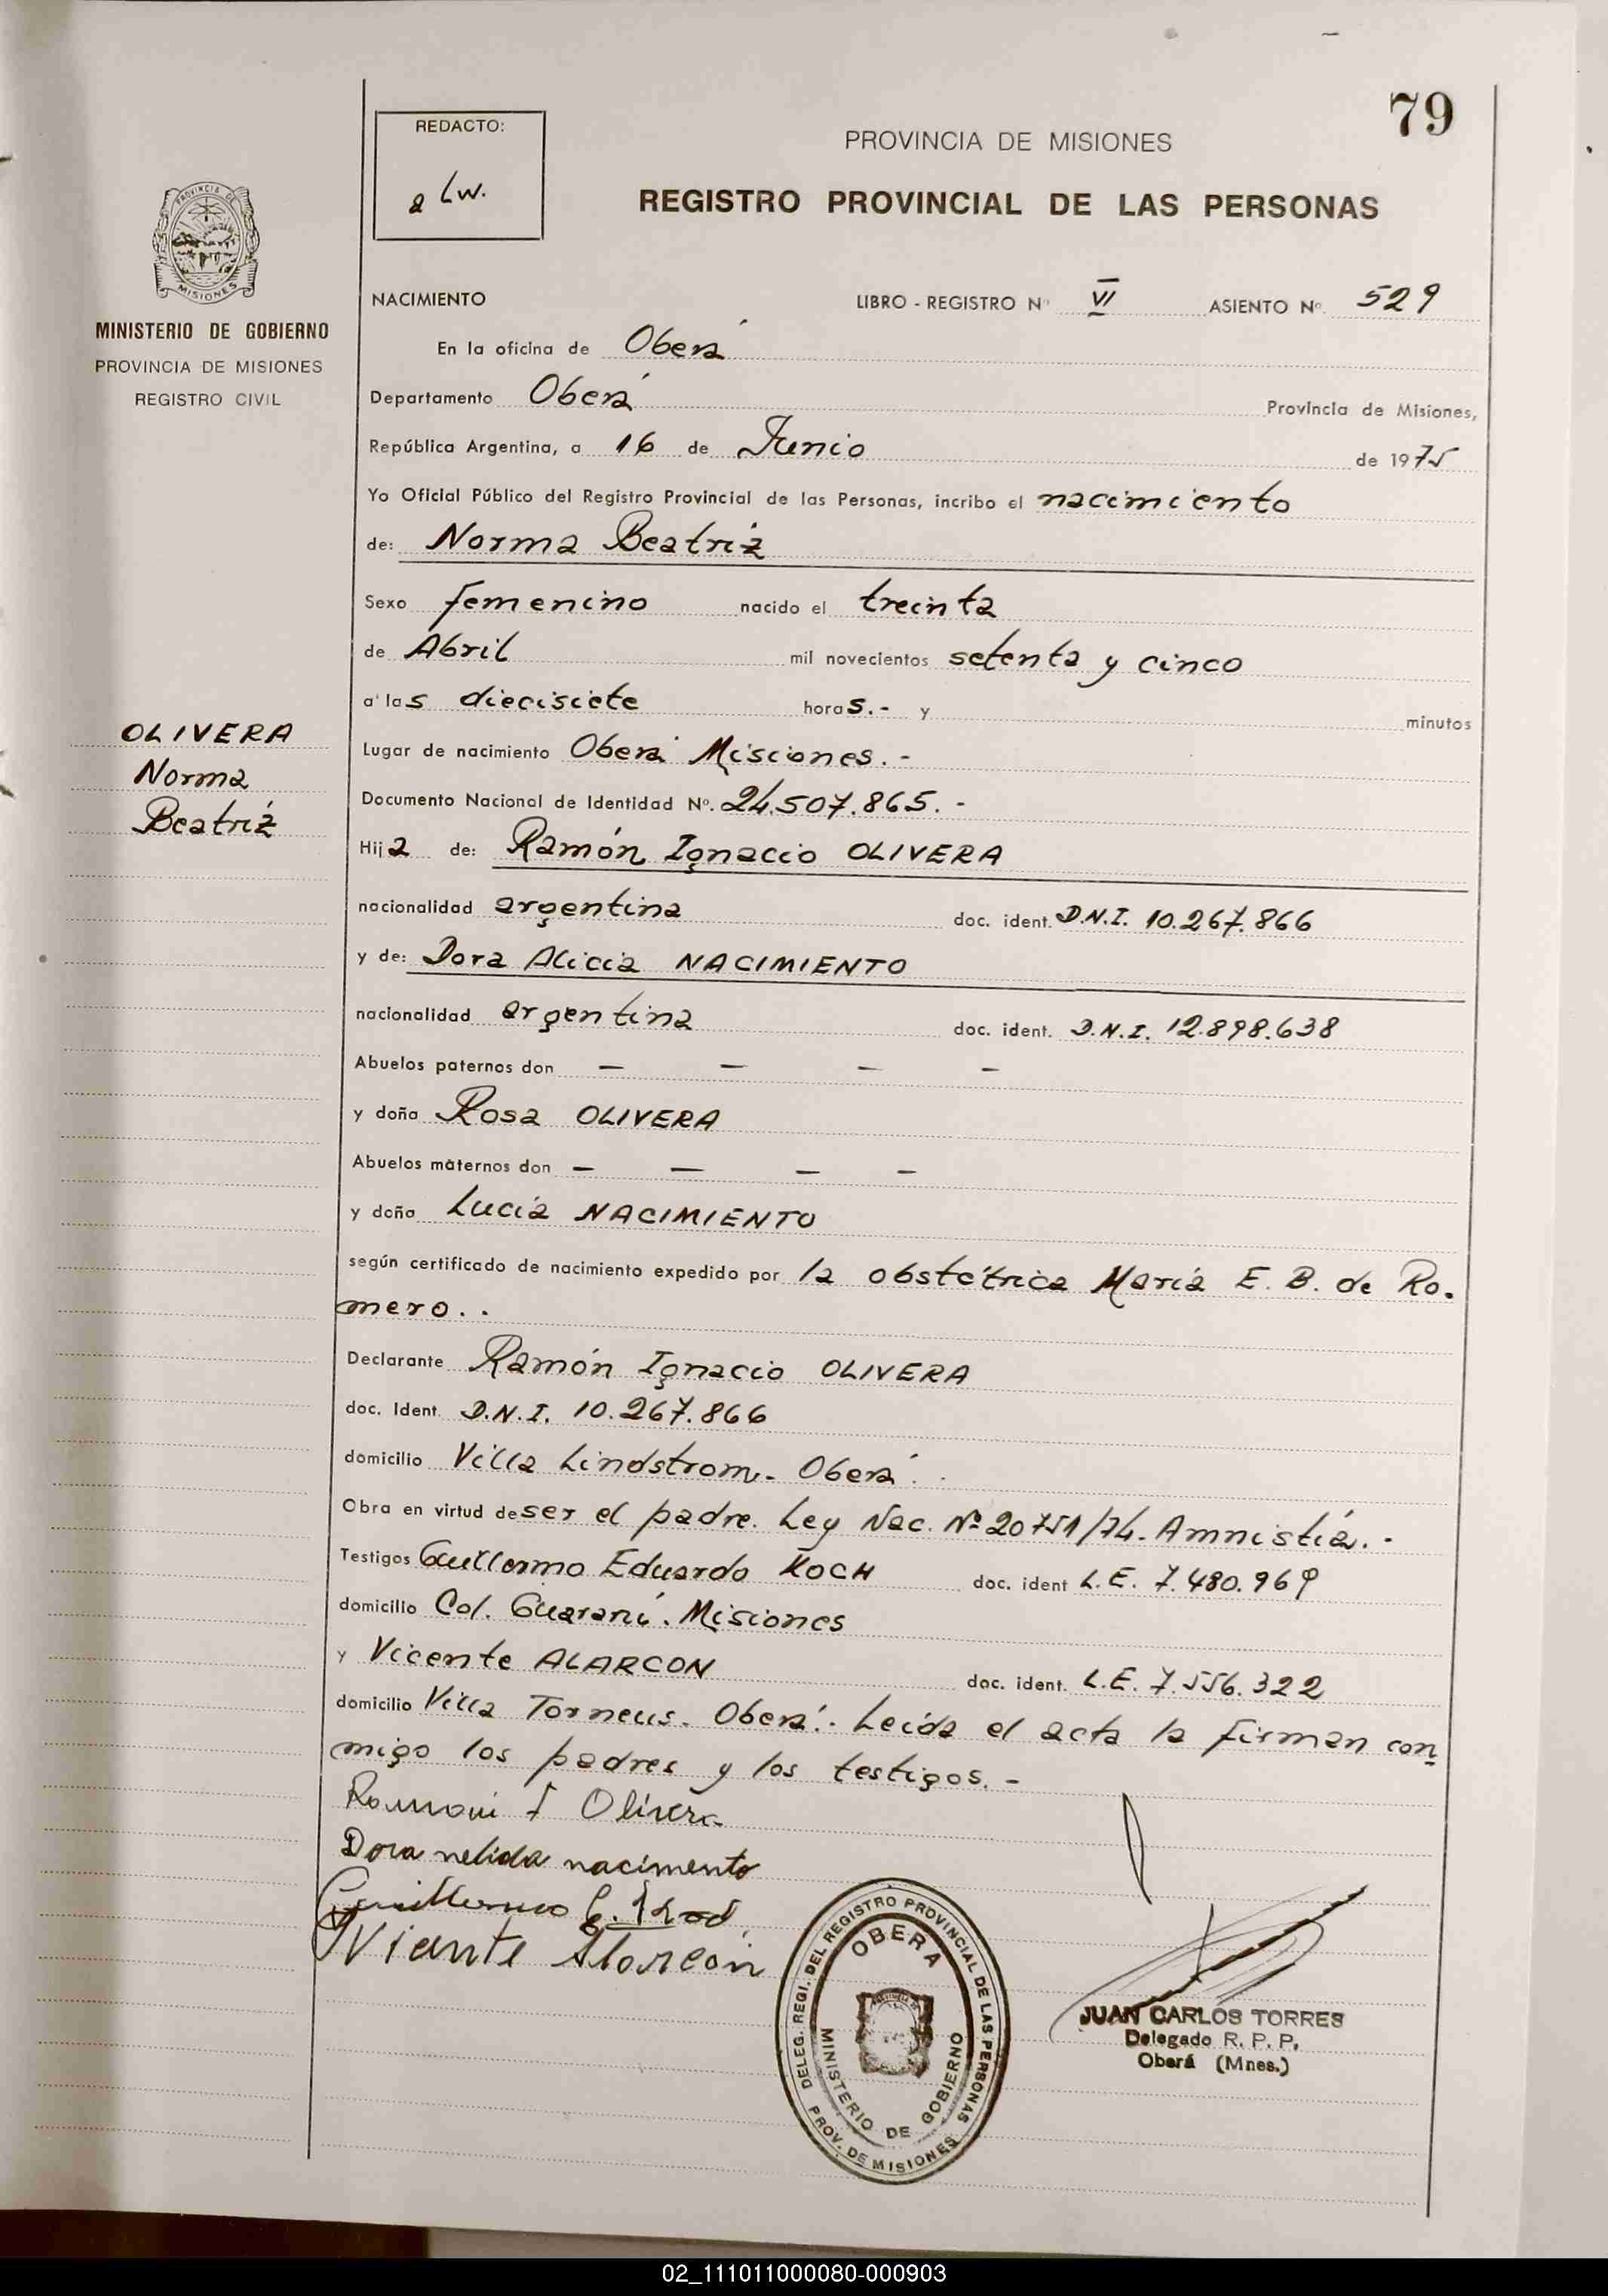 79
REDACTO:
a Lw.
PROVINCIA DE MISIONES
REGISTRO PROVINCIAL DE LAS PERSONAS
PROVINCIA DE
MISIONES
MINISTERIO DE GOBIERNO
PROVINCIA DE MISIONES
REGISTRO CIVIL
NACIMIENTO LIBRO - REGISTRO Nº VI ASIENTO Nº 529
En la oficina de Oberá
Departamento Oberá Provincia de Misiones,
República Argentina, a 16 de Junio de 1975
Yo Oficial Público del Registro Provincial de las Personas, incribo el nacimiento
de: Norma Beatriz
Sexo femenino nacido el treinta
de Abril mil novecientos setenta y cinco
a las diecisiete horas.- y minutos
OLIVERA
Norma
Beatriz
Lugar de nacimiento Oberá Misiones.-
Documento Nacional de Identidad Nº. 24.507.865.-
Hija de: Ramón Ignacio OLIVERA
nacionalidad argentina doc. ident. D.N.I. 10.267.866
y de: Dora Alicia NACIMIENTO
nacionalidad argentina doc. ident. D.N.I. 12.898.638
Abuelos paternos don — — — —
y doña Rosa OLIVERA
Abuelos maternos don — — — —
y doña Lucía NACIMIENTO
según certificado de nacimiento expedido por la obstétrica María E. B. de Ro.
mero..
Declarante Ramón Ignacio OLIVERA
doc. Ident. D.N.I. 10.267.866
domicilio Villa Lindstrom.- Oberá..
Obra en virtud de ser el padre. Ley Nac. Nº 20751/74. Amnistía.-
Testigos Guillermo Eduardo KOCH doc. ident L.E. 7.480.969
domicilio Col. Guaraní. Misiones
y Vicente ALARCON doc. ident. L.E. 7.556.322
domicilio Villa Torneus. Oberá.- Leída el acta la firman con
migo los padres y los testigos.-
Ramon I Olivera
Dora nelida nacimento
Guillermo E.
Vicente Alarcón
DELEG. REGI. DEL REGISTRO PROVINCIAL DE LAS PERSONAS
OBERA
MINISTERIO DE GOBIERNO
PROV. DE MISIONES
JUAN CARLOS TORRES
Delegado R. P. P.
Oberá (Mnes.)
02_111011000080-000903